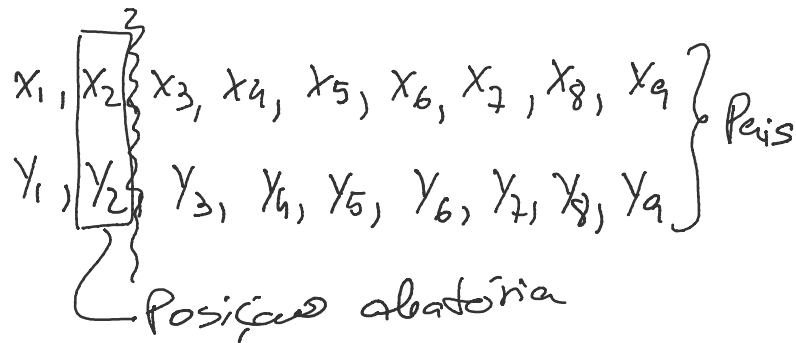 x₁, x₂ x₃, x₄, x₅, x₆, x₇, x₈, x₉ } Pais
y₁, y₂ y₃, y₄, y₅, y₆, y₇, y₈, y₉
Posição aleatória